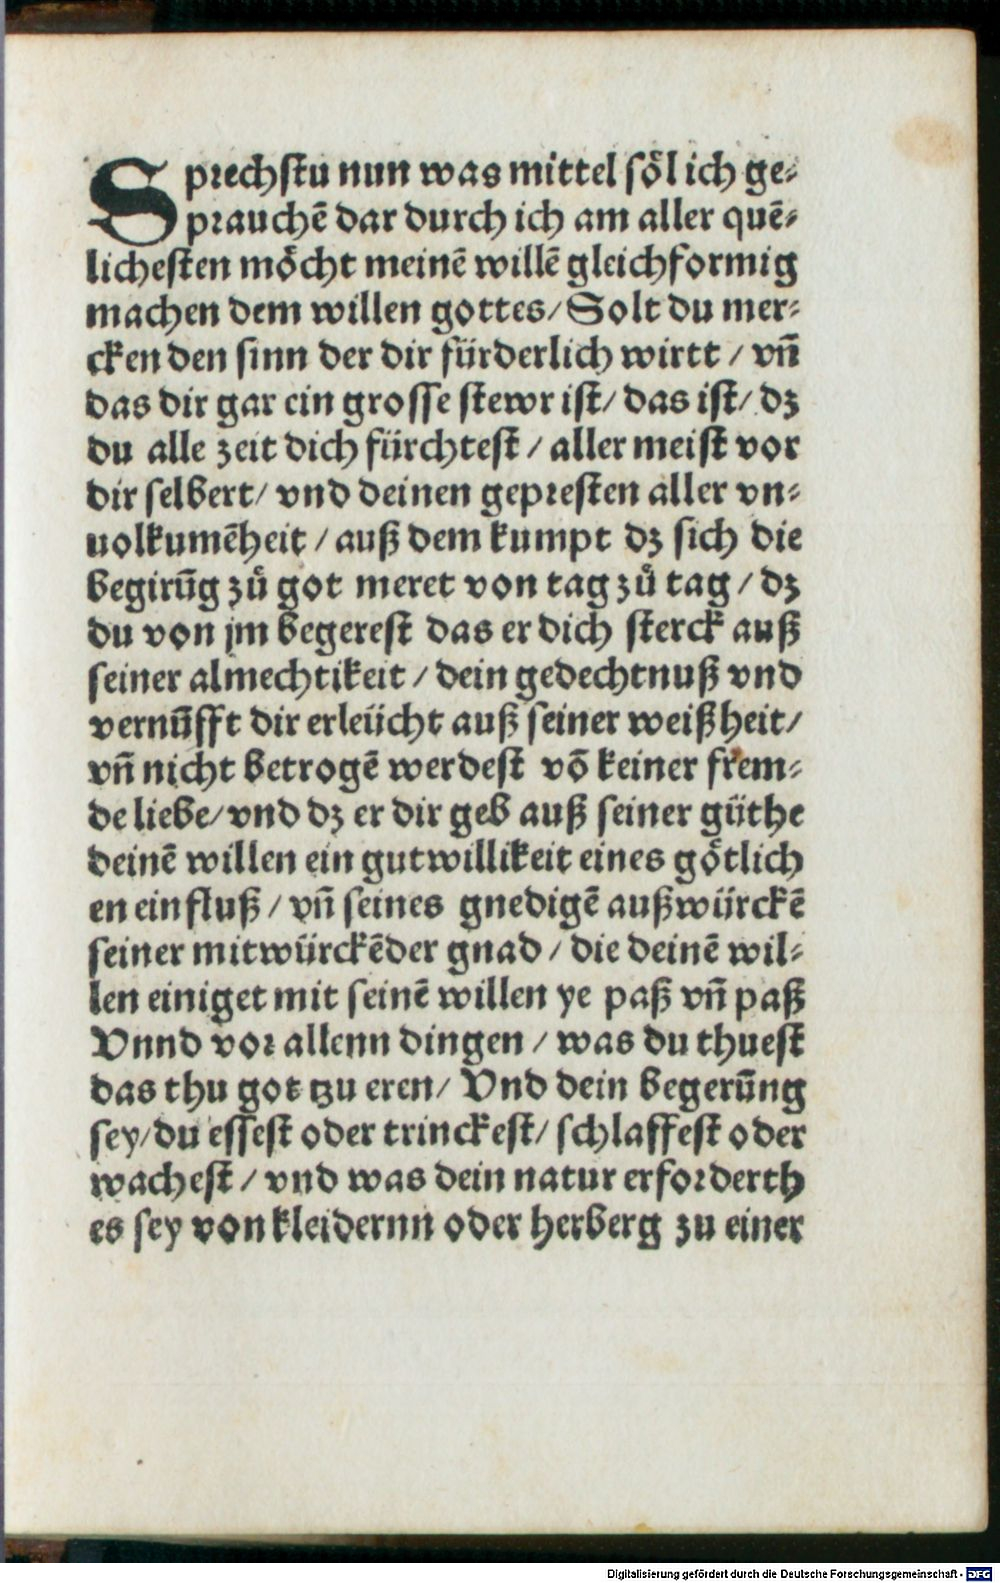 Sprechstu nun was mittel söl ich ge⸗
prauchē dar durch ich am aller quē⸗
lichesten möcht meinē willē gleichformig
machen dem willen gottes/ Solt du mer⸗
cken den sinn der dir fürderlich wirtt / vñ
das dir gar ein grosse stewr ist/ das ist/ dz
du alle zeit dich fürchtest / aller meist vor
dir selbert/ vnd deinen gepresten aller vn⸗
uolkumēheit / auß dem kumpt dz sich die
begirūg zů got meret von tag zů tag / dz
du von jm begerest das er dich sterck auß
seiner almechtikeit / dein gedechtnuß vnd
vernūfft dir erleücht auß seiner weißheit/
vñ nicht betrogē werdest vō keiner frem⸗
de liebe/ vnd dz er dir geb auß seiner güthe
deinē willen ein gutwillikeit eines götlich
en einfluß / vñ seines gnedigē außwürckē
seiner mitwürckēder gnad / die deinē wil⸗
len einiget mit seinē willen ye paß vñ paß
Vnnd vor allenn dingen / was du thuest
das thu got tzu eren/ Vnd dein begerūng
sey/ du essest oder trinckest/ schlaffest oder
wachest / vnd was dein natur erforderth
es sey von kleidernn oder herberg zu einer
Digitalisierung gefördert durch die Deutsche Forschungsgemeinschaft - DFG